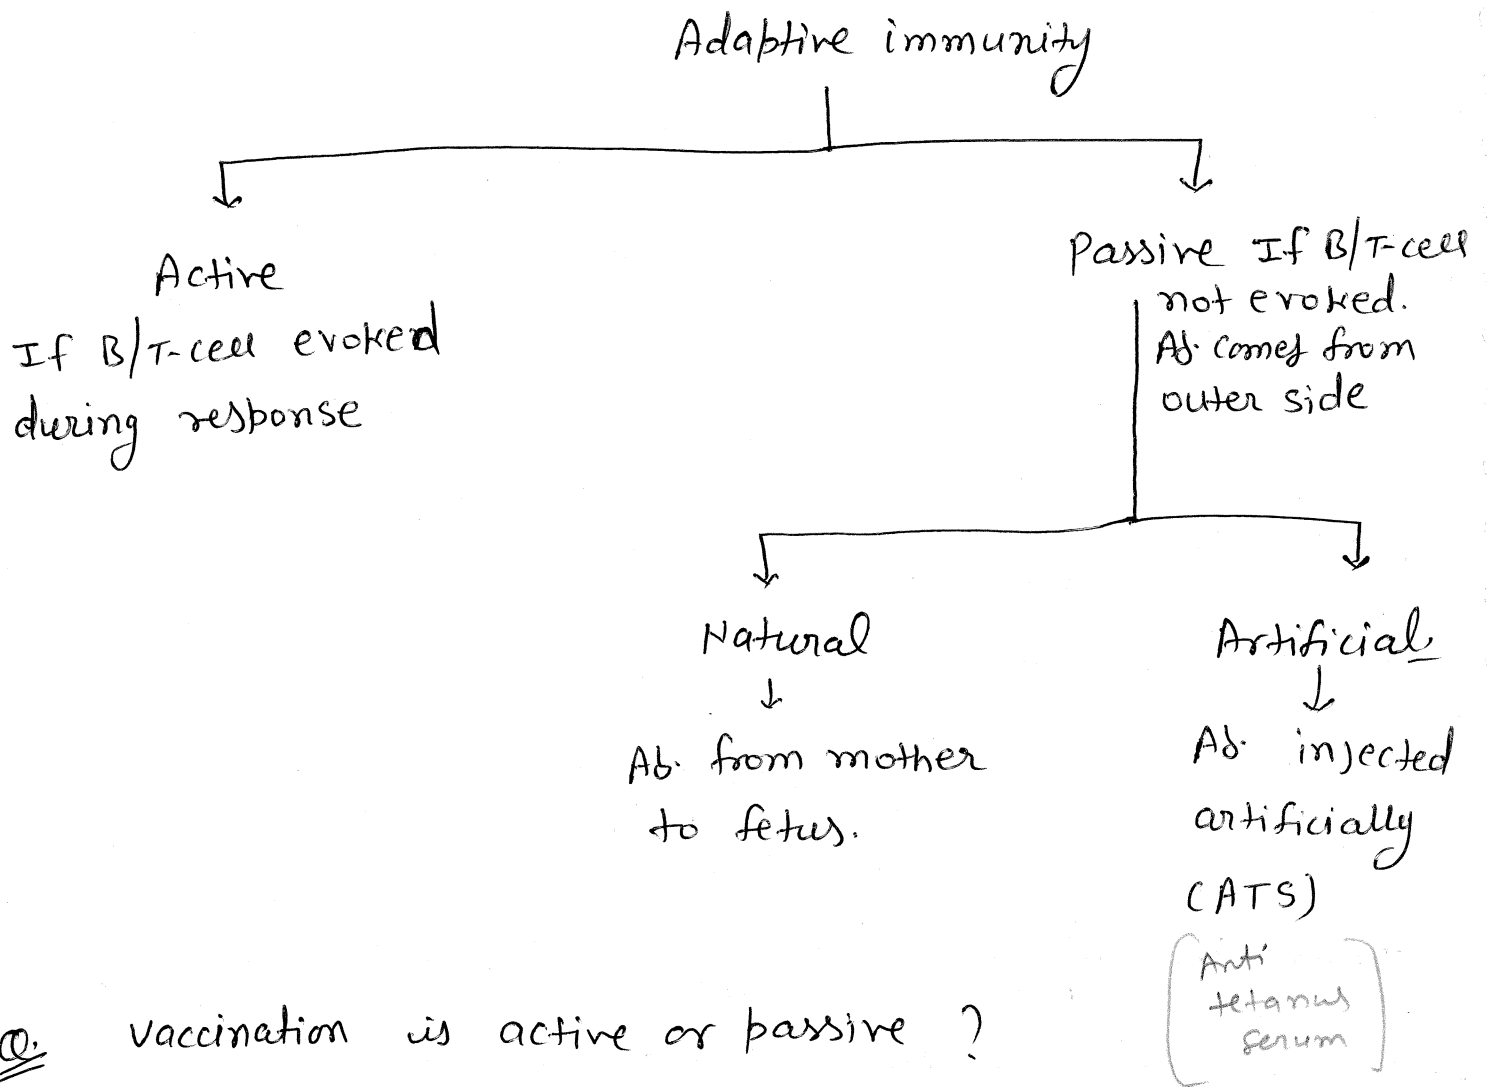 Adaptive immunity
Active
If B/T-cell evoked
during response
Passive If B/T-cell
not evoked.
Ab. comes from
outer side
Natural
Ab. from mother
to fetus.
Artificial
Ab. injected
artificially
(ATS)
Anti
tetanus
serum
Q. vaccination is active or passive ?